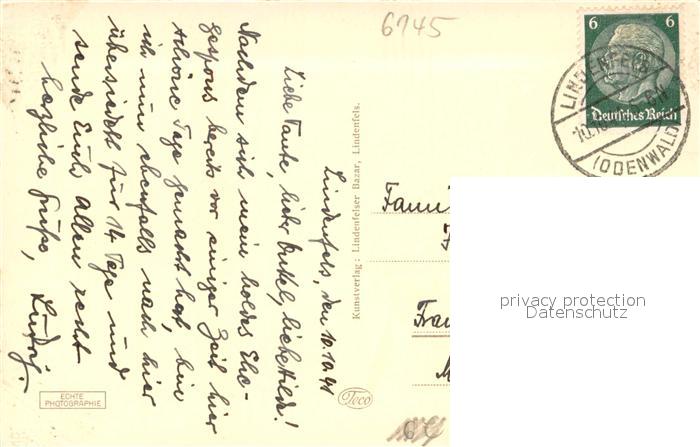 6745
6 6
Deutsches Reich
LINDENFELS
10.10
(ODENWALD)
Lindenfels, den 10.10.41
Liebe Tante, lieber Onkel, liebe Hilde!
Nachdem sich mein holdes Ehe-
gespons bereits vor einiger Zeit hier
schöne Tage gemacht hat, bin
ich nun ebenfalls nach hier
übersiedelt für 14 Tage und
sende Euch allen recht
herzliche Grüße,
Ludwig.
Kunstverlag: Lindenfelser Bazar, Lindenfels.
Fami
Fra
M
privacy protection
Datenschutz
ECHTE
PHOTOGRAPHIE
Teco
64